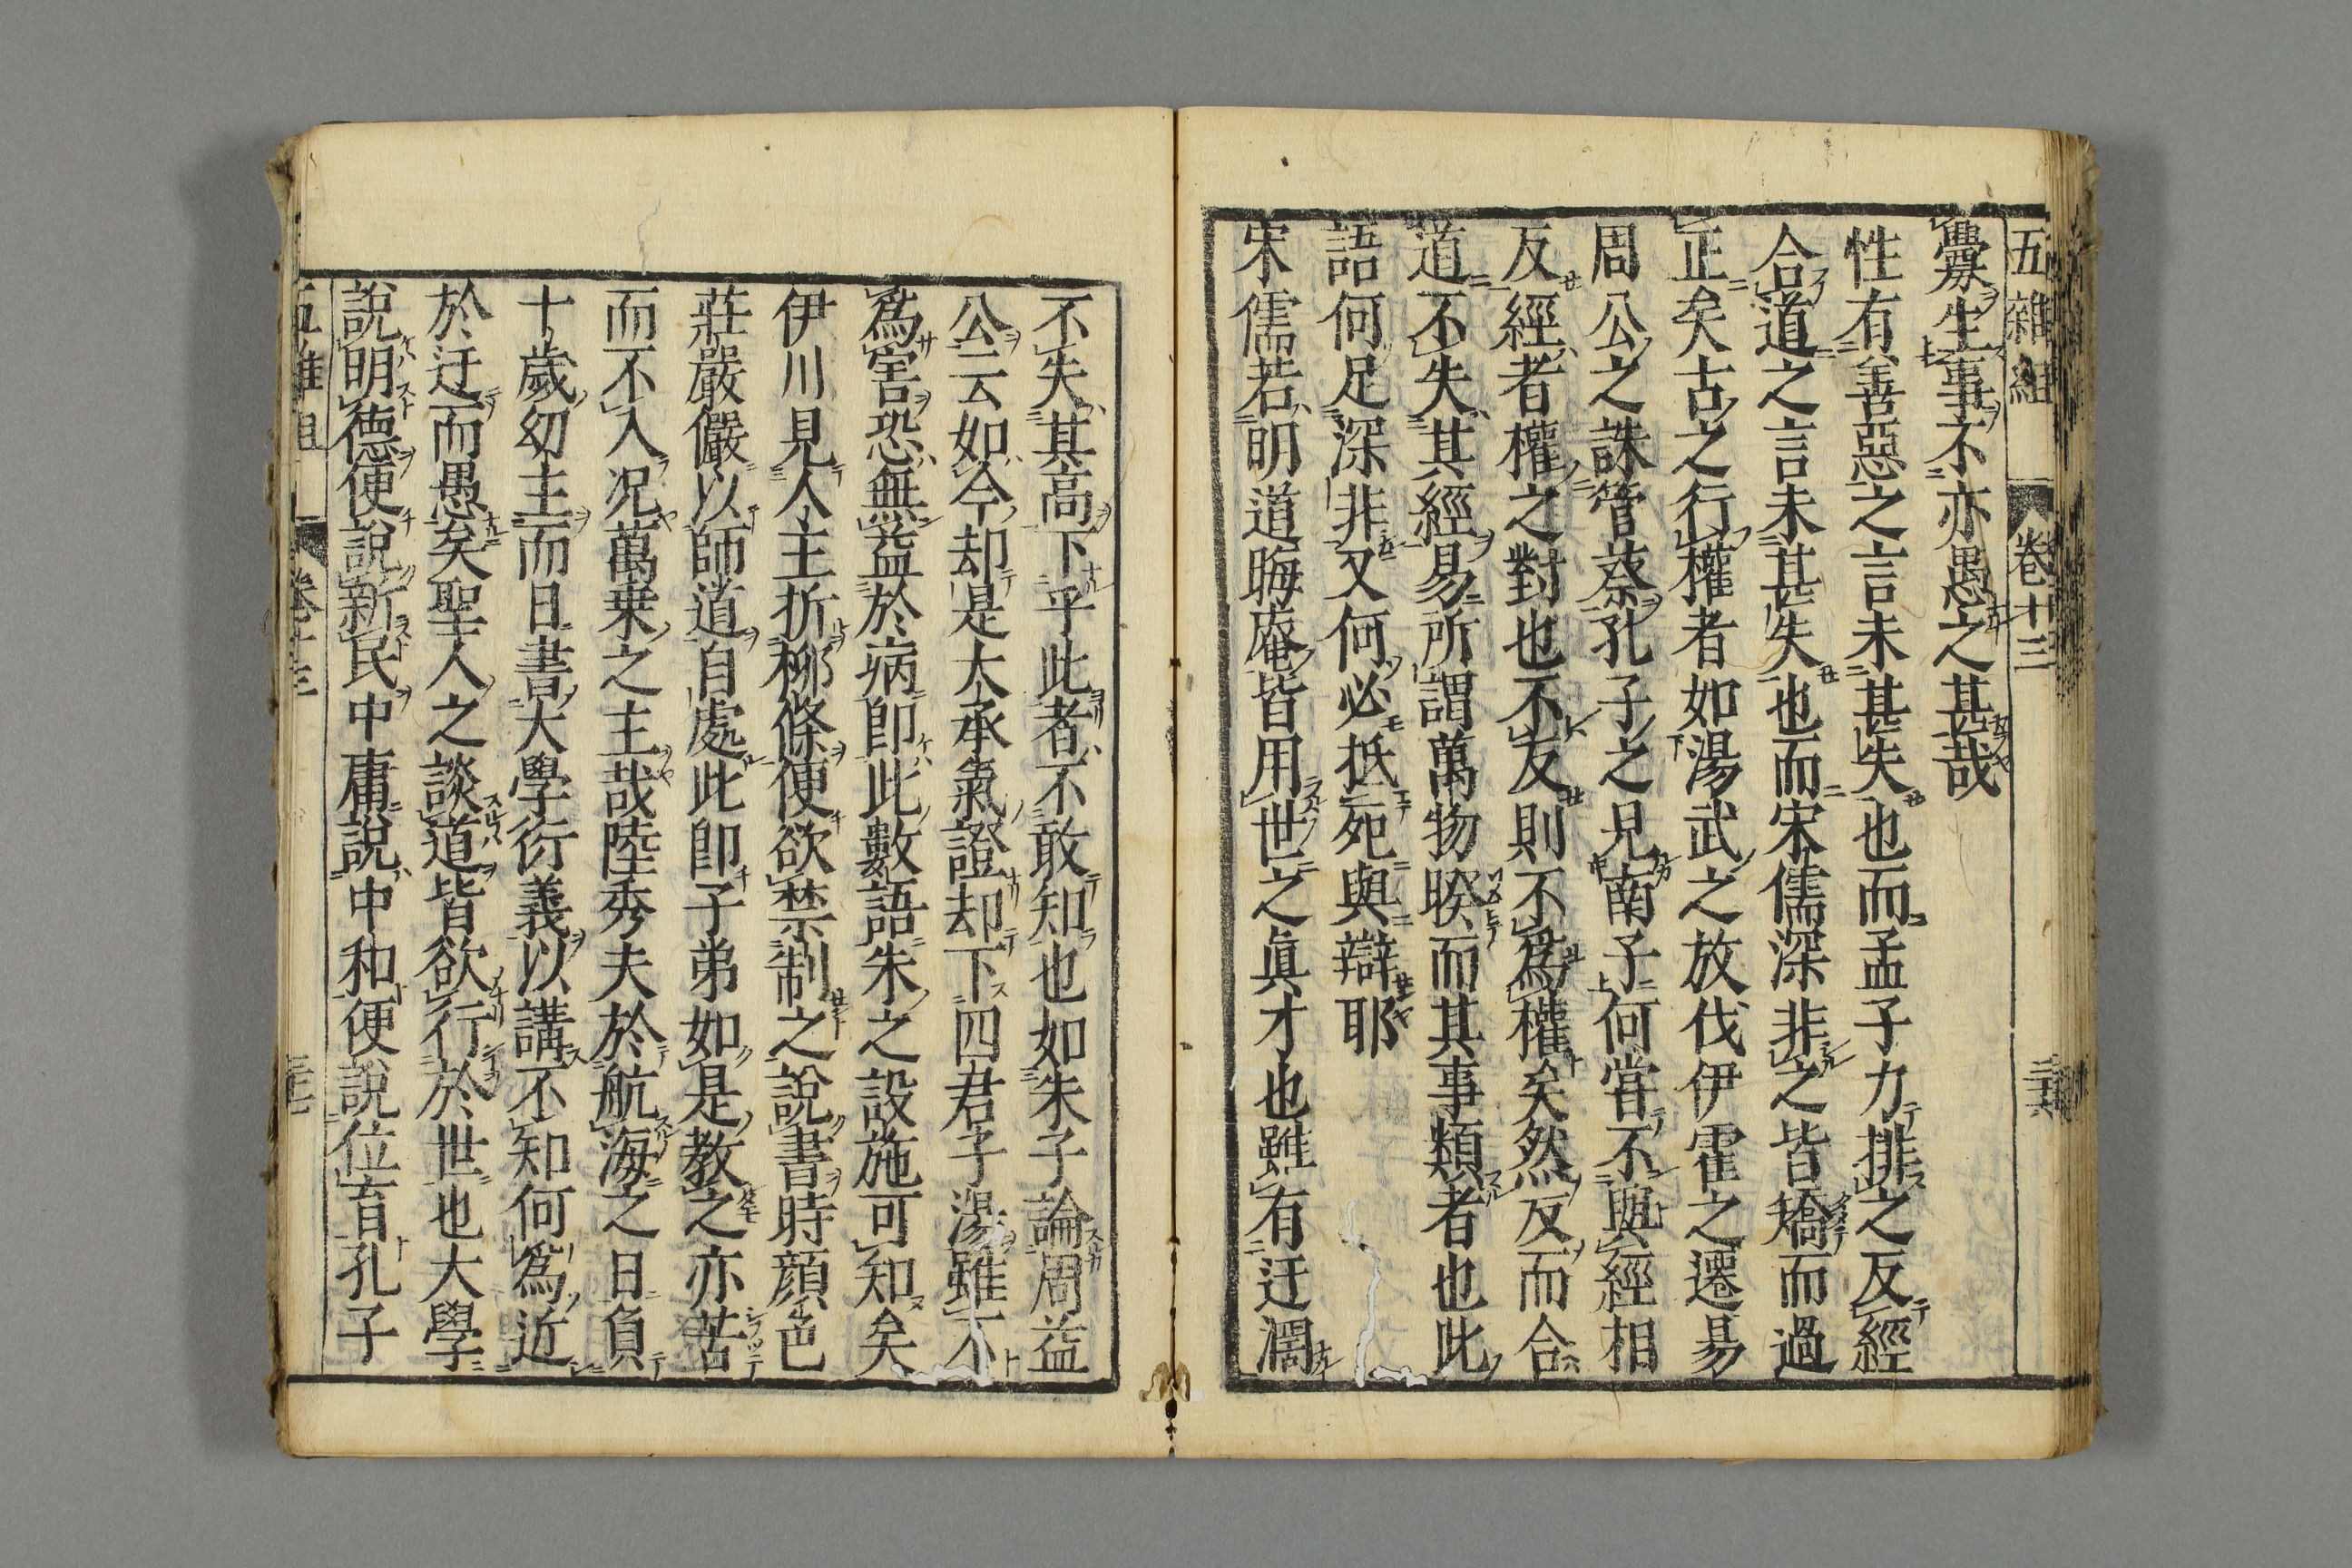 五雜組 卷十三 三十六
釁生事不亦愚之甚哉
性有善惡之言未甚失也而孟子力排之反經
合道之言未甚失也而宋儒深非之皆矯而過
正矣古之行權者如湯武之放伐伊霍之遷易
周公之誅管蔡孔子之見南子何甞不與經相
反經者權之對也不反則不爲權矣然反而合
道不失其經易所謂萬物睽而其事類者也此
語何足深非又何必抵死與辯耶
宋儒若明道晦庵皆用世之眞才也雖有迂濶
不失其高下乎此者不敢知也如朱子論周益
公云如今却是大承氣證却下四君子湯雖不
爲害恐無益於病卽此數語朱之設施可知矣
伊川見人主折柳條便欲禁制之說書時顔色
莊嚴儼以師道自處此卽子弟如是教之亦苦
而不入况萬乗之主哉陸秀夫於航海之日負
十歲幼主而日書大學衍義以講不知何爲近
於迂而愚矣聖人之談道皆欲行於世也大學
說明德便說新民中庸說中和便說位育孔子
五雜組 卷十三